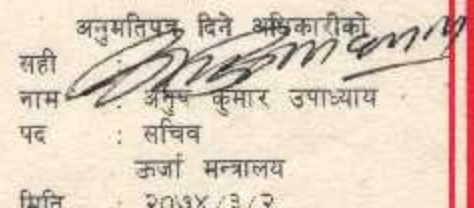 अनुमतिपत्र दिने अधिकारीको
सही :
नाम : अनुप कुमार उपाध्याय
पद : सचिव
ऊर्जा मन्त्रालय
मिति : २०७४/३/२